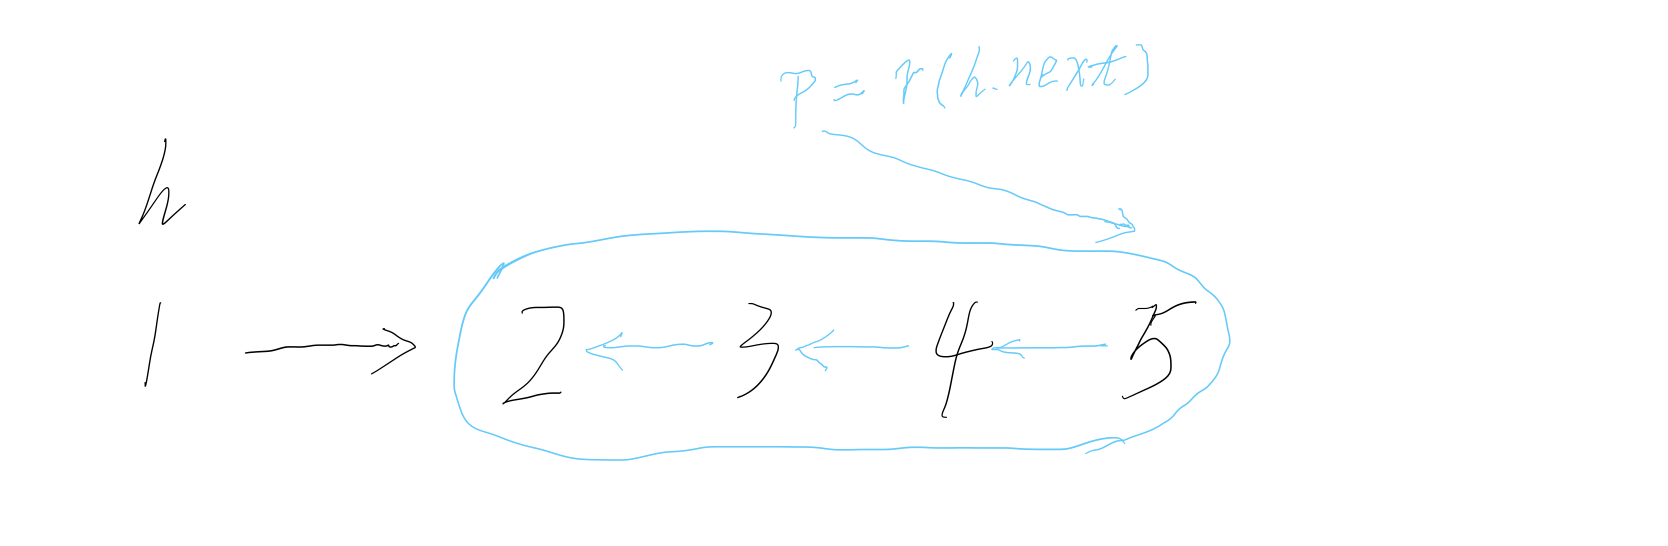 p = r(h.next)
h
1 → 2 ← 3 ← 4 ← 5